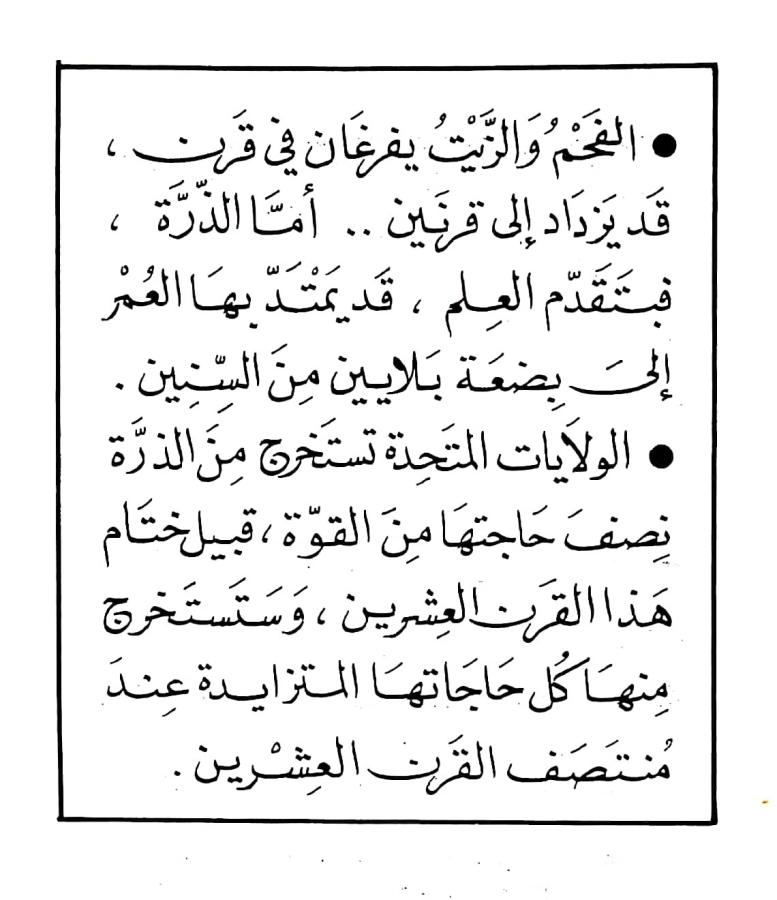 ● الفَحْمُ وَالزَّيْتُ يفرغَان في قَرن ،
قَد يَزدَاد إلى قرنَين .. أمَّا الذّرَّة ،
فبتَقَدّم العِلم ، قَد يَمْتَدّ بهَا العُمْر
إلىَ بِضعَة بَلايين مِنَ السِّنِين .
● الولاَيات المتَحِدة تستَخرج مِنَ الذرَّة
نِصفَ حَاجتهَا مِنَ القوّة ، قبيل ختَام
هَذا القَرن العِشرين ، وَسَتَستَخرج
مِنهَا كُل حَاجَاتهَا المتزايدة عِندَ
مُنتَصَف القَرن العِشْرين .